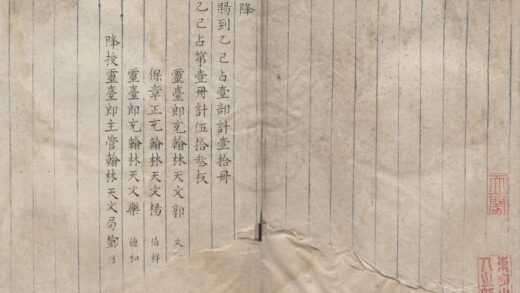 降
賜到乙巳占壹部計壹拾冊
乙巳占第壹冊計伍拾叁板
靈臺郎充翰林天文郭 文
保章正充翰林天文楊 伯祥
靈臺郎充翰林天文欒 德
降授靈臺郎主管翰林天文局